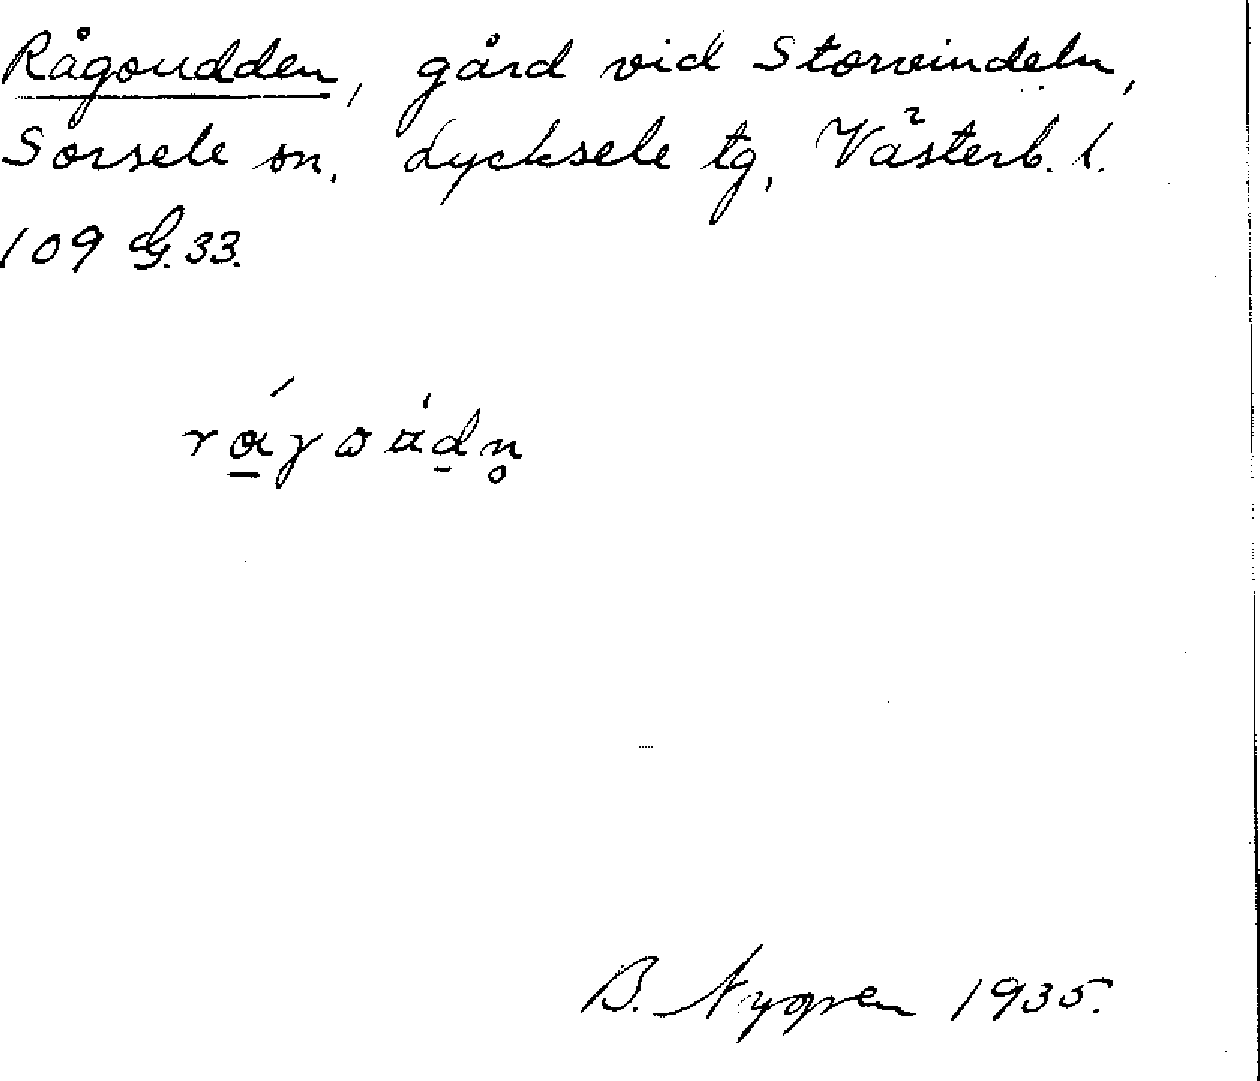 Rågoudden, gård vid Storvindeln,
Sorsele sn. Lycksele tg, Västerb. l.
109 G. 33.
B. Nygren 1935.